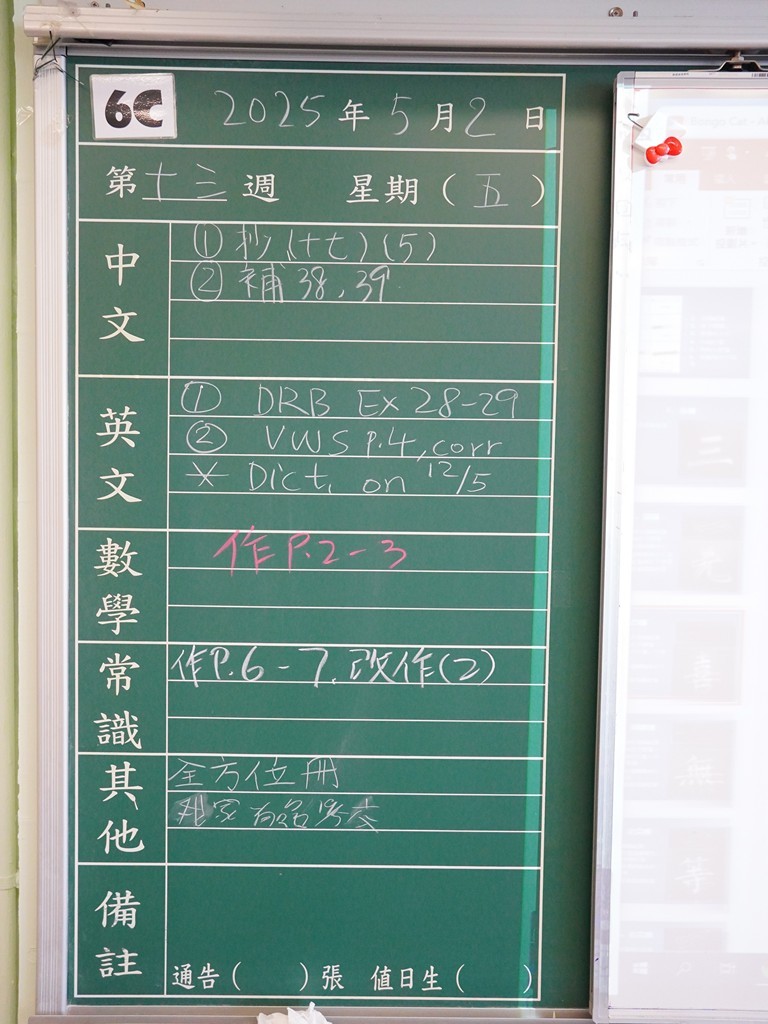 6C 2025年5月2日
第十三週 星期(五)
中文
① 抄(十七)(5)
② 補38,39
英文
① DRB Ex 28-29
② VWS P.4, corr
* Dict. on 12/5
數學
作P.2-3
常識
作P.6-7.改作(2)
其他
全方位冊
備註
通告( )張 值日生( )
三
元
喜
無
等